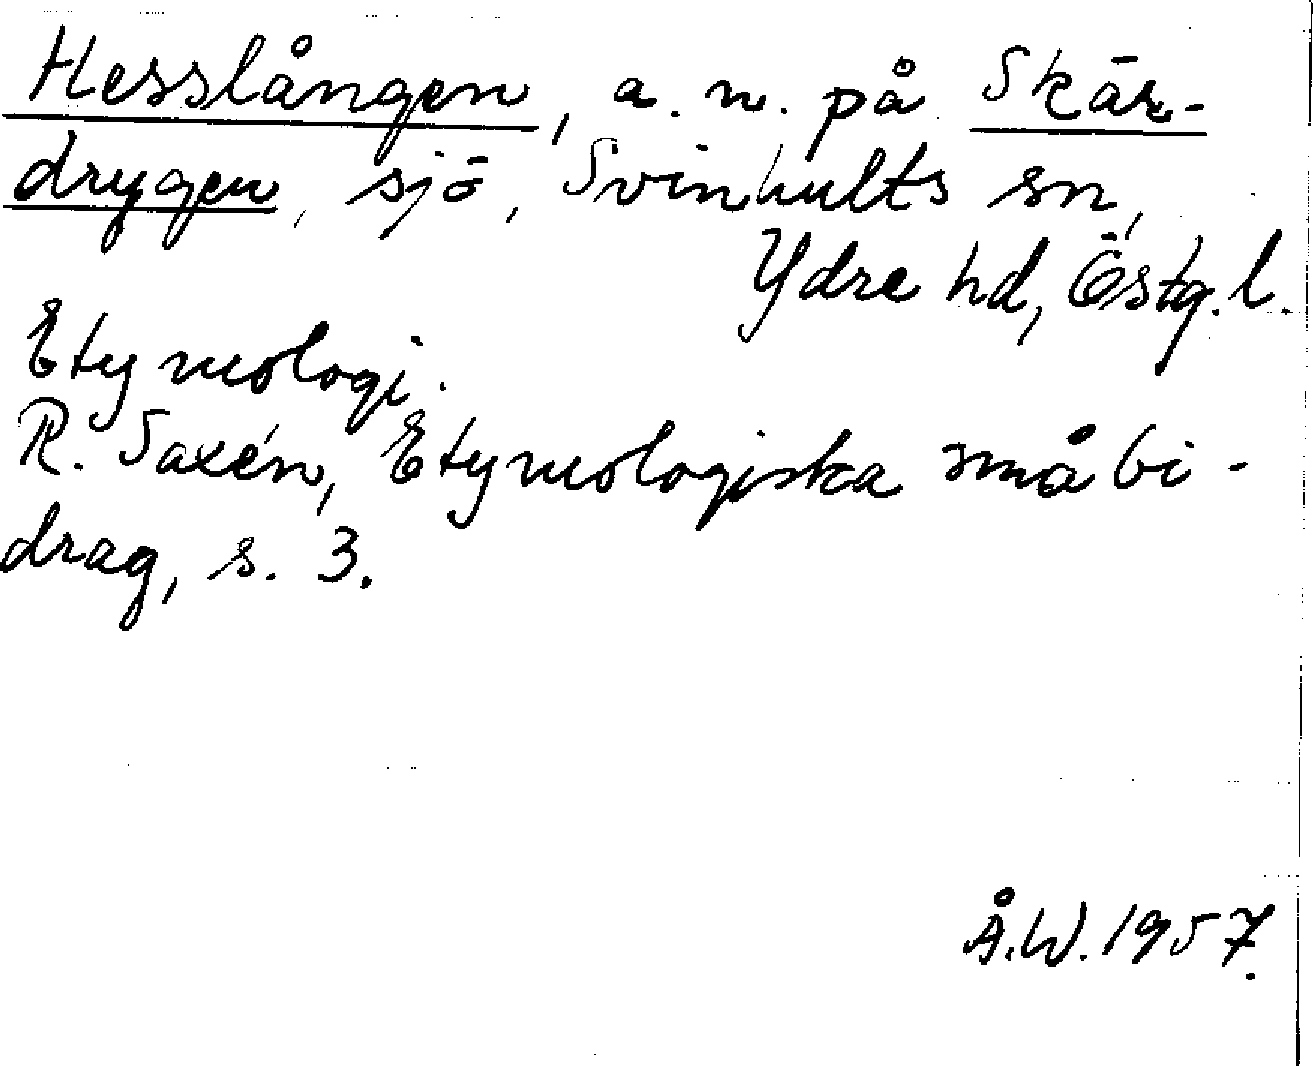 Hesslången, a. n. på Skär-
drygen, sjö, Svinhults sn,
Ydre hd, Östg. l.
Etymologi.
R. Saxén, Etymologiska småbi-
drag, s. 3.
Å.W. 1957.